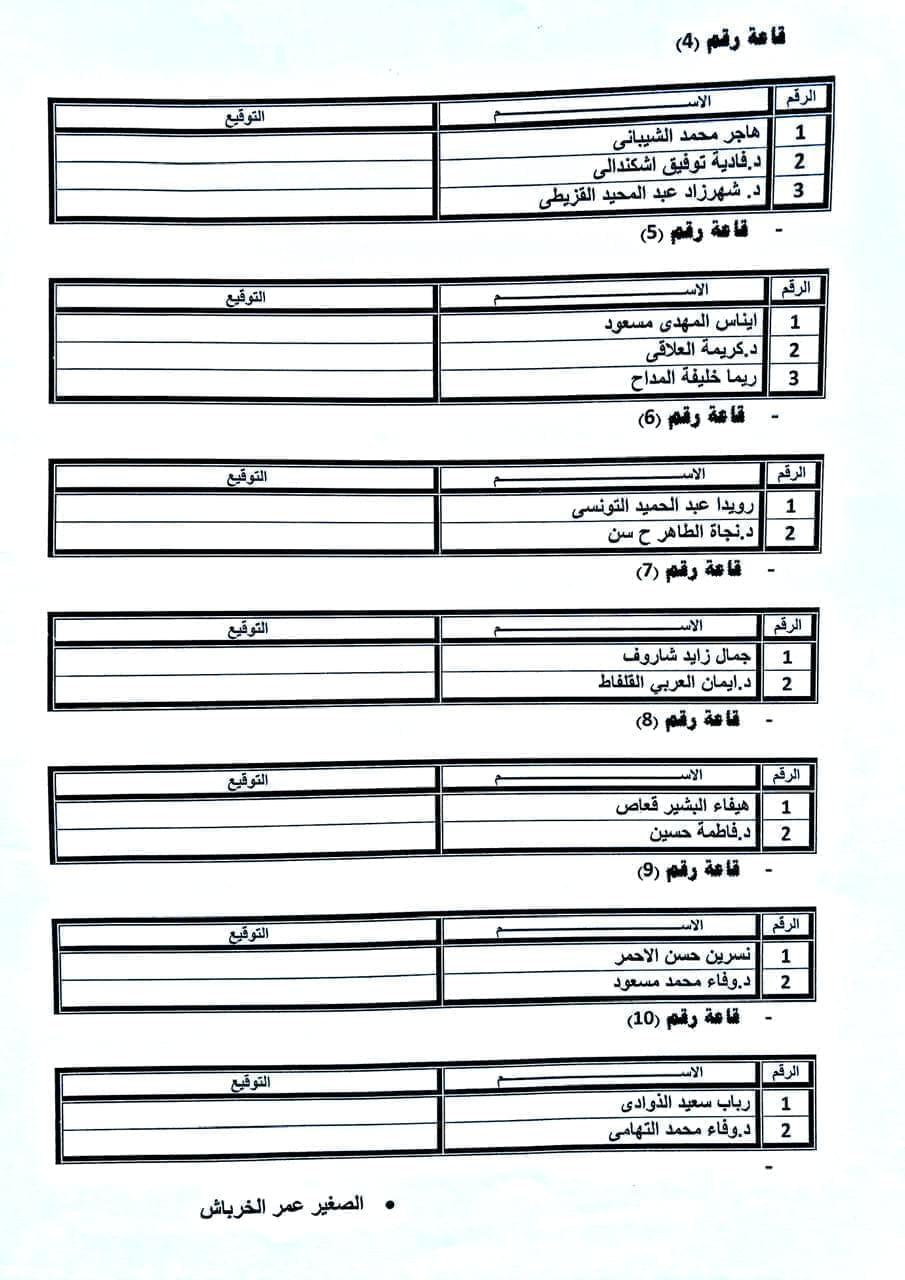 قاعة رقم (4)
الرقم الاســـــــــم التوقيع
1 هاجر محمد الشيبانى
2 د.فادية توفيق اشكندالى
3 د. شهرزاد عبد المحيد القزيطى
- قاعة رقم (5)
الرقم الاســـــــــم التوقيع
1 ايناس المهدى مسعود
2 د.كريمة العلاقى
3 ريما خليفة المداح
- قاعة رقم (6)
الرقم الاســـــــــم التوقيع
1 رويدا عبد الحميد التونسى
2 د.نجاة الطاهر ح سن
- قاعة رقم (7)
الرقم الاســـــــــم التوقيع
1 جمال زايد شاروف
2 د.ايمان العربي القلفاط
- قاعة رقم (8)
الرقم الاســـــــــم التوقيع
1 هيفاء البشير قعاص
2 د.فاطمة حسين
- قاعة رقم (9)
الرقم الاســـــــــم التوقيع
1 نسرين حسن الاحمر
2 د.وفاء محمد مسعود
- قاعة رقم (10)
الرقم الاســـــــــم التوقيع
1 رباب سعيد الذوادى
2 د.وفاء محمد التهامى
-
• الصغير عمر الخرباش